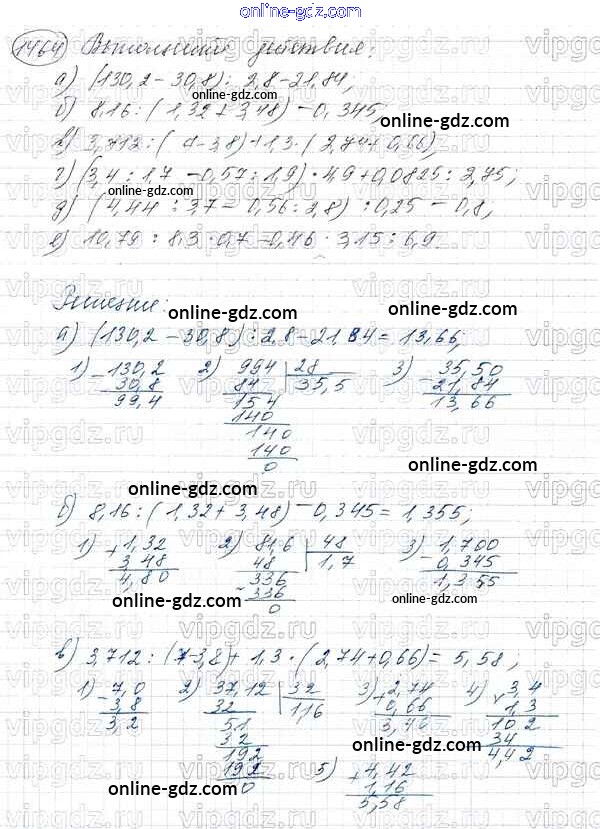 online-gdz.com
1464 Выполните действия:
а) (130,2-30,8): 2,8-21,84;
б) 8,16:(1,32+3,48)-0,345;
в) 3,712:( -3,8)+1,3·(2,74+0,66)
г) (3,4:1,7-0,57:1,9)·4,9+0,0825:2,75;
д) (4,44:3,7-0,56:2,8):0,25-0,8;
е) 10,79:8,3·0,7-0,46·3,15:6,9
Решение:
а) (130,2-30,8):2,8-21,84=13,66;
1) 130,2 2) 994 28 3) 35,50
- 30,8 84 35,5 - 21,84
99,4 154 13,66
140
140
140
0
б) 8,16:(1,32+3,48)-0,345=1,355;
1) 1,32 2) 81,6 48 3) 1,700
+ 3,48 48 1,7 - 0,345
4,80 336 1,355
- 336
0
в) 3,712:(7-3,8)+1,3·(2,74+0,66)=5,58;
1) 7,0 2) 37,12 32 3) 2,74 4) 3,4
- 3,8 32 1,16 + 0,66 × 1,3
3,2 51 3,40 102
32 34
192 4,42
192 5) 4,42
0 + 1,16
5,58